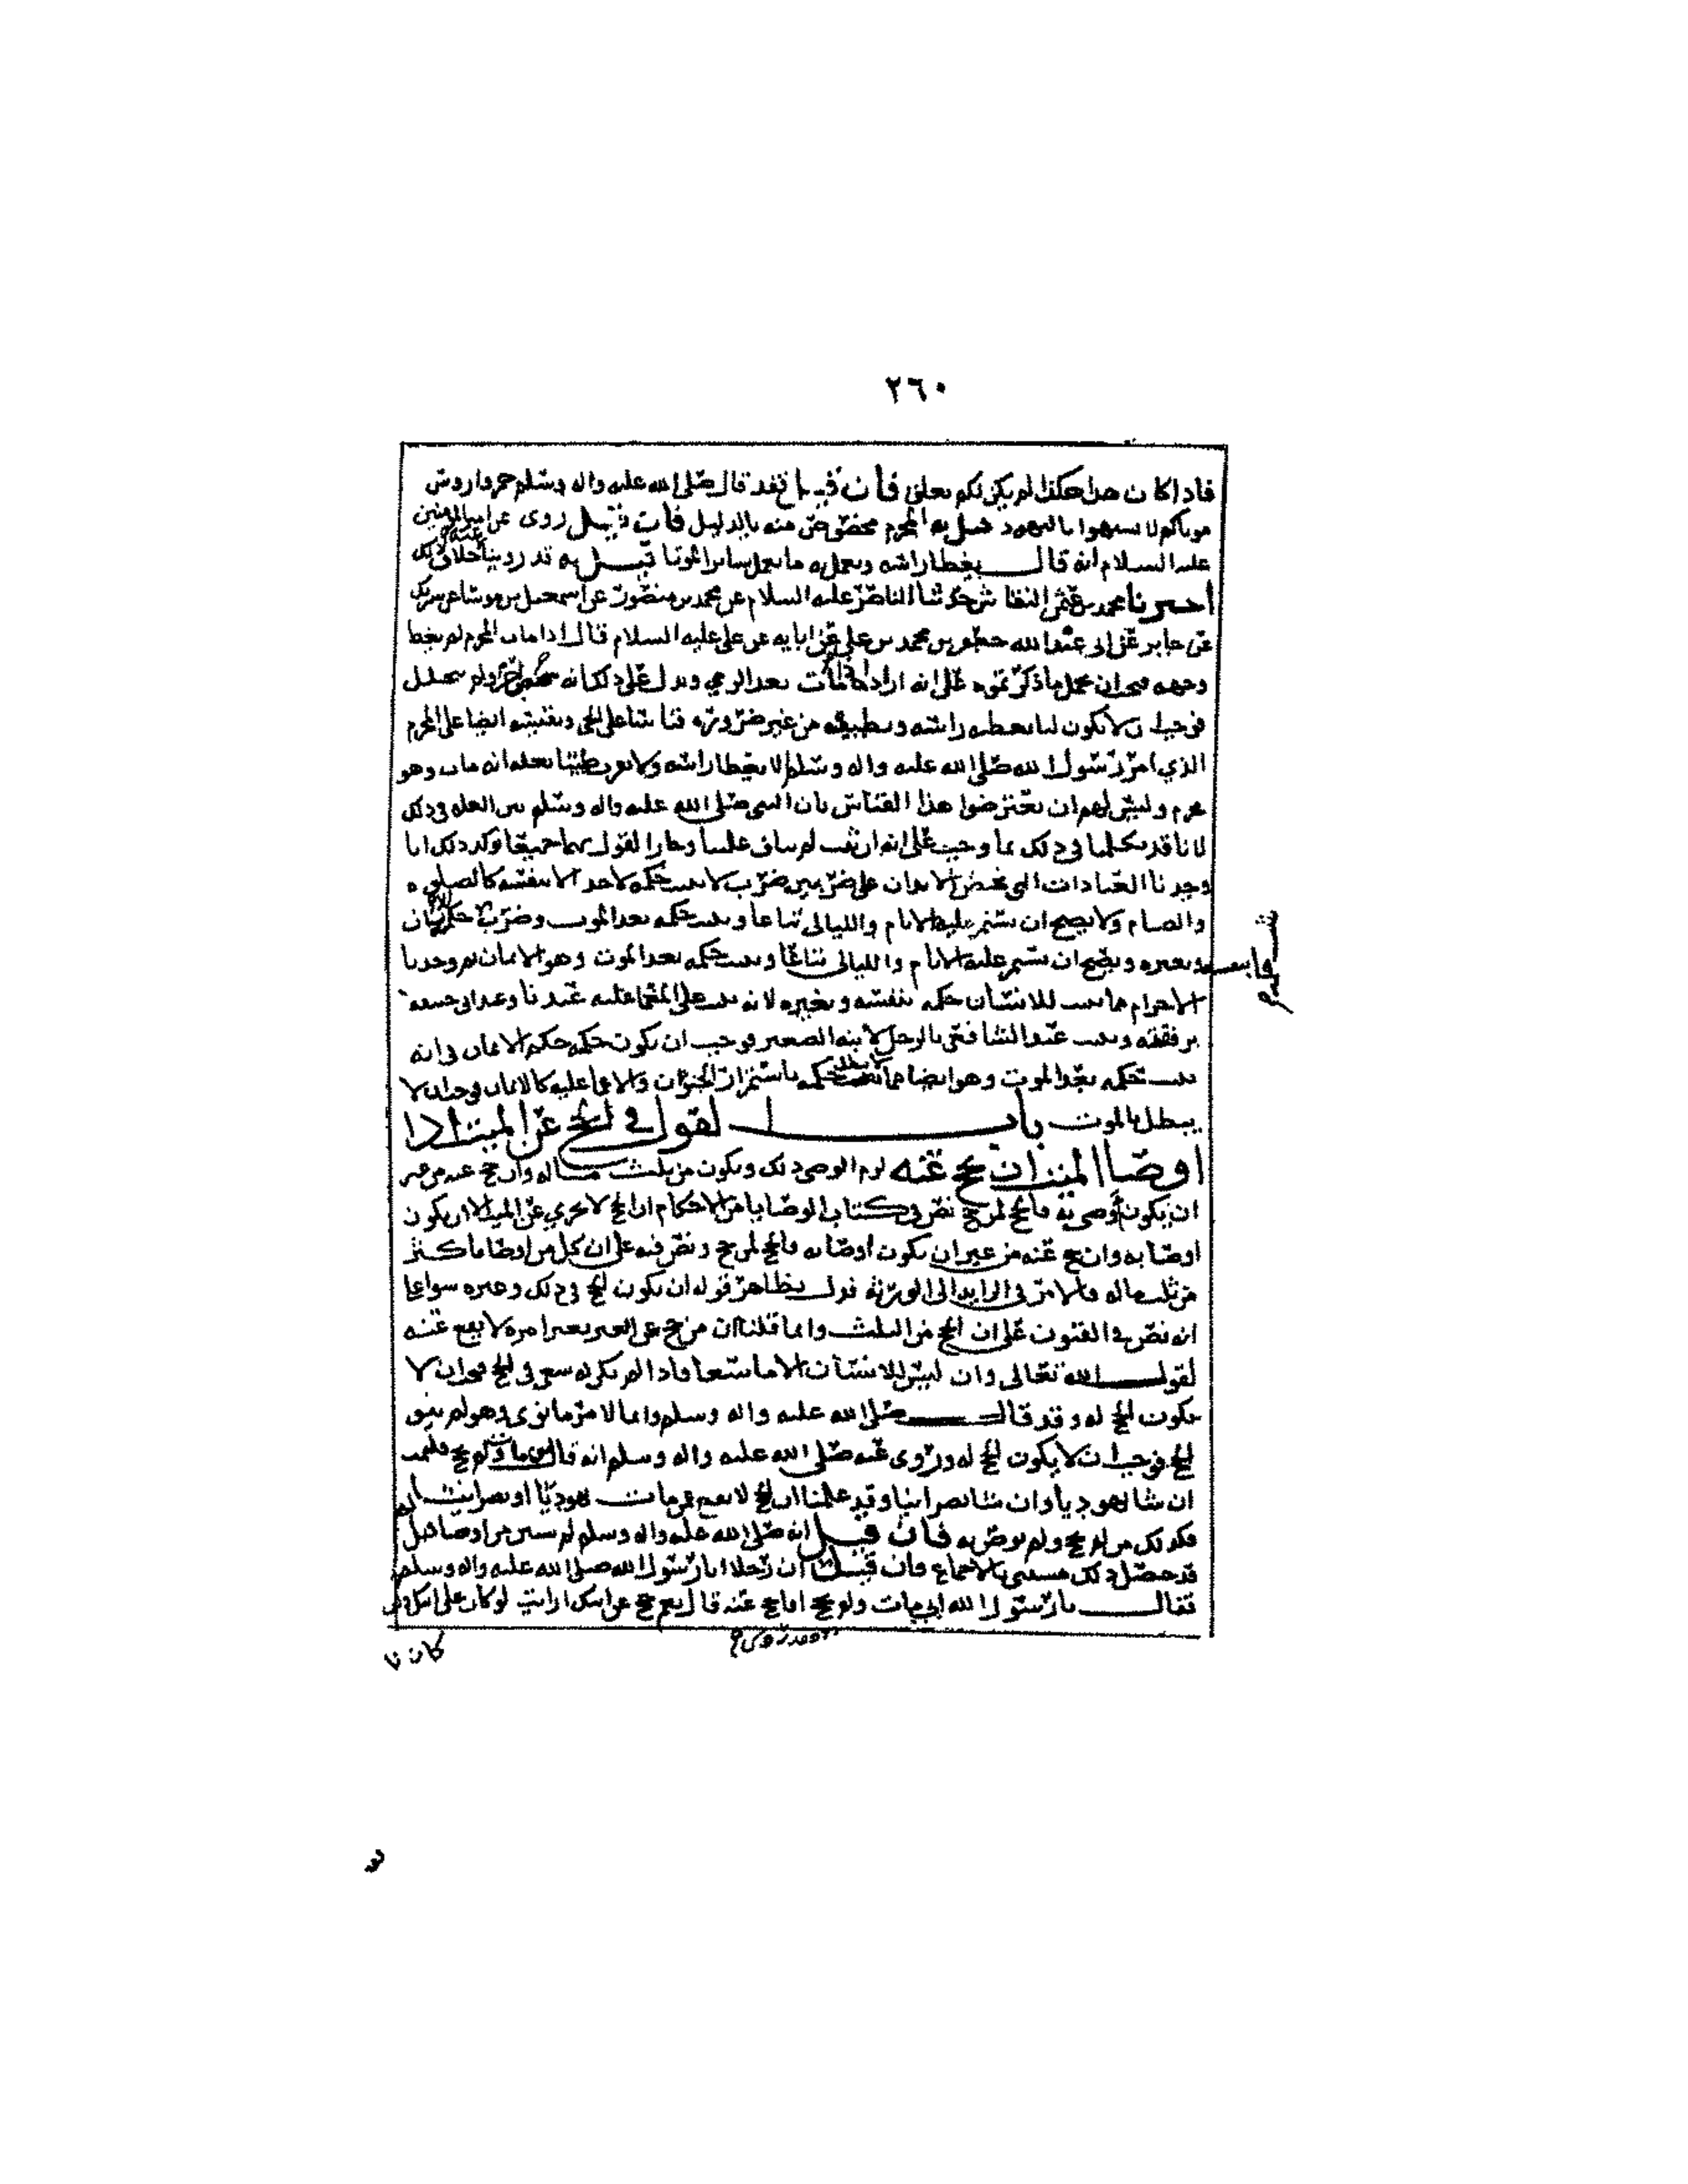 ٢٦٠
فاذا كان هذا هكذا لم يكن لكم تعلق فأن قيل فقد قال صلى الله عليه واله وسلم خمروا روس
موتاكم لا تشبهوا باليهود قيل له المحرم مخصوص منه بالدليل فان قيل روى عن امير المومنين
عليه السلام انه قال يغطا راسه ويعمل به ما يعمل بساير الموتا قيل له قد روينا عنه خلاف ذلك
أخبرنا محمد بن عثمن النقاش حدثنا الناصر عليه السلام عن محمد بن منصور عن اسمعيل بن موسا عن شريك
عن جابر عن ابي عبد الله جعفر بن محمد بن علي عن ابايه عن علي عليه السلام قال اذا مات المحرم لم يغطا
وجهه فيجب ان يحمل ما ذكرتموه على انه اراد اذا مات بعد الرمي ويدل على ذلك انه شخص احرم ولم يتحلل
فوجب ان لا يكون لنا تغطيه راسه وتطييبه من غير ضرورته قياسا على الحي ونقيسه ايضا على المحرم
الذي امر رسول الله صلى الله عليه واله وسلم الا يغطا راسه ولا يقرب طيبا بعله انه مات وهو
محرم وليس لهم ان يعترضوا هذا القياس بان النبي صلى الله عليه واله وسلم بين العله في ذلك
لانا قد تكلمنا في ذلك بما وجب على انه ان ثبت لم يناف علتنا وجاز القول بهما جميعا وكد ذلك انا
وجدنا العبادات التي تختص الابدان على ضربين ضرب لا يثبت حكمه لاحد الا بنفسه كالصلوه
والصيام ولا يصح ان يستمر عليه الايام والليالي تباعا ويثبت حكمه بعد الموت وضرب يثبت حكمه للانسان
بنفسه وبغيره ويصح ان يستمر عليه الايام والليالي تباعا ويثبت حكمه بعد الموت وهو الايمان ثم وجدنا
الاحرام مما يثبت للانسان حكمه بنفسه وبغيره لانه يثبت على المغما عليه عندنا وعند ابي حنيفه
برفقته ويثبت عند الشافعي بالرجل لابنه الصغير فوجب ان يكون حكمه حكم الايمان في انه
يثبت حكمه بعد الموت وهو ايضا مما لا يبطل حكمه باستمرار الجنون والاغما عليه كالايمان فوجب ان لا
يبطل بالموت باب القول في الحج عن الميت اذا
اوصا الميت ان يحج عنه لزم الوصي ذلك ويكون من ثلث ماله وان حج عنه من غير
ان يكون أوصى به فالحج لمن حج نص في كتاب الوصايا من الاحكام ان الحج لا يجزي عن الميت الا ان يكون
اوصا به وان حج عنه من غير ان يكون اوصا به فالحج لمن حج ونص فيه على ان كل من اوصا باكثر
من ثلث ماله فالامر في الزايد الى الورثه فدل بظاهر قوله ان يكون الحج في ذلك وغيره سوا على
انه نص في الفنون على ان الحج من الثلث وانما قلنا ان من حج عن الغير بغير امره لا يقع عنه
لقول الله تعالى وان ليس للانسان الا ما سعا فاذا لم يكن له سعي في الحج فيجب ان لا
يكون الحج له وقد قال صلى الله عليه واله وسلم وانما لامرٍ ما نوى وهو لم ينو
الحج فوجب ان لا يكون الحج له وروى عنه صلى الله عليه واله وسلم انه قال من مات ولم يحج فليمت
ان شا يهوديا وان شا نصرانيا وقد علمنا ان الحج لا يقع عمن مات يهوديا او نصرانيا
فكذلك من لم يحج ولم يوص به فان قيل انه صلى الله عليه واله وسلم لم يستثن من اوصا قيل له
قد حصل ذلك مستثنى بالاجماع فان قيل ان رجلا اتا رسول الله صلى الله عليه واله وسلم
فقال يا رسول الله ابي مات ولم يحج افاحج عنه قال نعم حج عن ابيك ارايت لو كان على ابيك دين